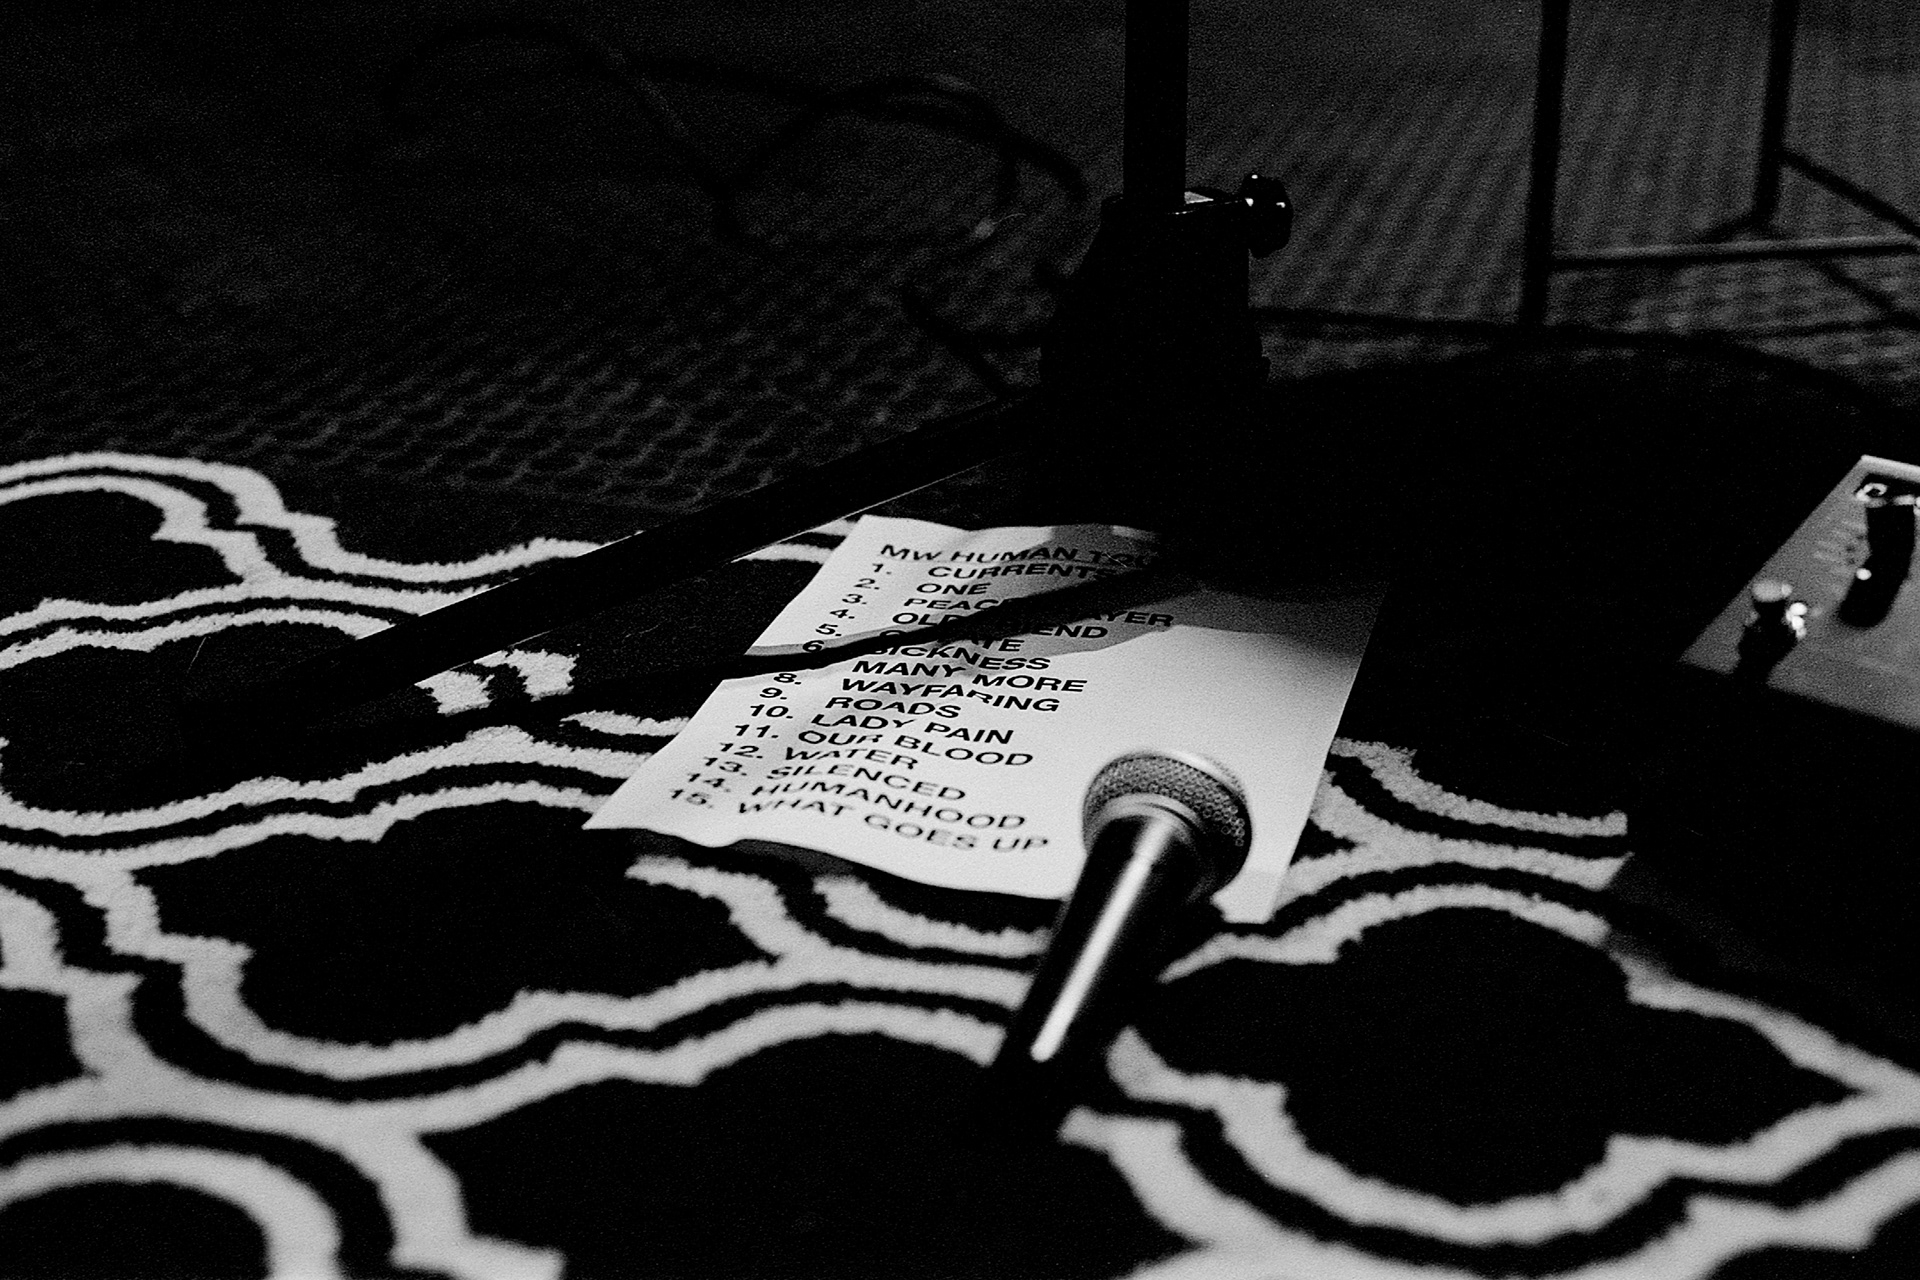 MW HUMAN
1. CURRENTS
2. ONE
3. PEACE PRAYER
4. OLD FRIEND
5.
6. SICKNESS
MANY MORE
8. WAYFARING
9. ROADS
10. LADY PAIN
11. OUR BLOOD
12. WATER
13. SILENCED
14. HUMANHOOD
15. WHAT GOES UP